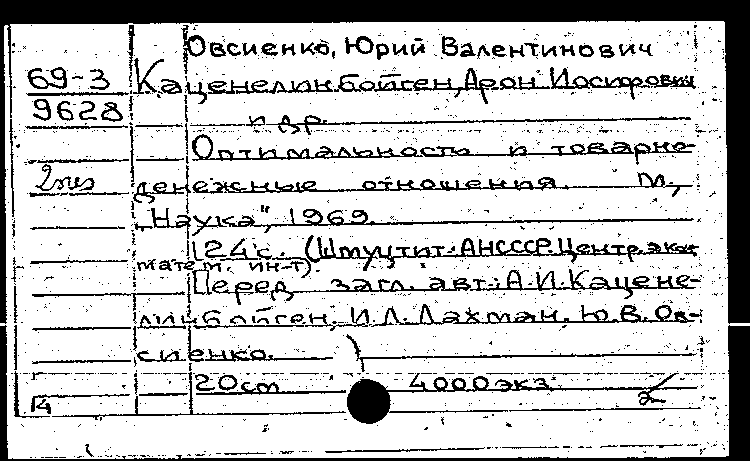 Овсиенко, Юрий Валентинович
69-3 Каценелинбойген, Арон Иосифович
9628 и др.
Оптимальность и товарно-
2 экз денежные отношения. М.,
„Наука", 1969.
124 с. (Шмуцтит.: АН СССР. Центр. экон.
матем. ин-т).
Перед загл. авт.: А.И. Кацене-
линбойген, И.Л. Лахман, Ю.В. Ов-
сиенко.
20 см 4000 экз.
14